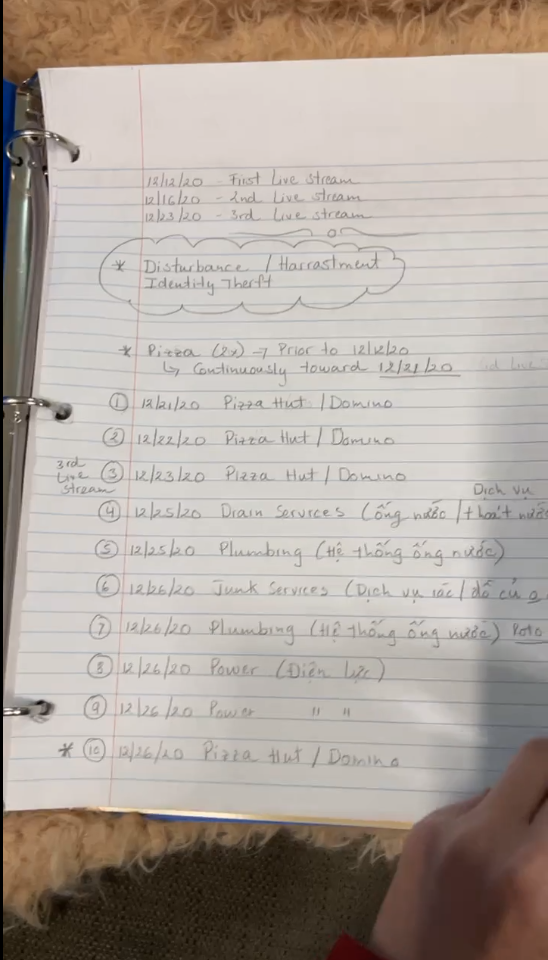 12/12/20 - First Live stream
12/16/20 - 2nd Live stream
12/23/20 - 3rd Live stream
* Disturbance / Harrastment
Identity Therft
* Pizza (2x) → Prior to 12/12/20
↳ Continuously toward 12/21/20
① 12/21/20 Pizza Hut / Domino
② 12/22/20 Pizza Hut / Domino
3rd Live stream ③ 12/23/20 Pizza Hut / Domino
Dịch vụ
④ 12/25/20 Drain Services (ống nước / thoát nước
⑤ 12/25/20 Plumbing (Hệ thống ống nước)
⑥ 12/26/20 Junk Services (Dịch vụ rác / đồ cũ
⑦ 12/26/20 Plumbing (Hệ thống ống nước) Roto
⑧ 12/26/20 Power (Điện lực)
⑨ 12/26/20 Power " "
* ⑩ 12/26/20 Pizza Hut / Domino